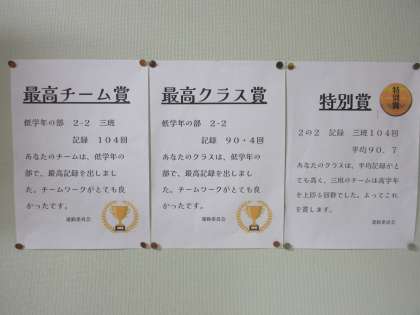 最高チーム賞
低学年の部　2-2　三班
記録　104回
あなたのチームは、低学年の
部で、最高記録を出しまし
た。チームワークがとても良
かったです。
運動委員会
最高クラス賞
低学年の部　2-2
記録　90・4回
あなたのクラスは、低学年の
部で、最高記録を出しまし
た。チームワークがとても良
かったです。
運動委員会
特別賞
特別賞
2の2　記録　三班104回
平均90．7
あなたのクラスは、平均記録がと
ても高く、三班のチームは高学年
を上回る回数でした。よってこれ
を賞します。
運動委員会